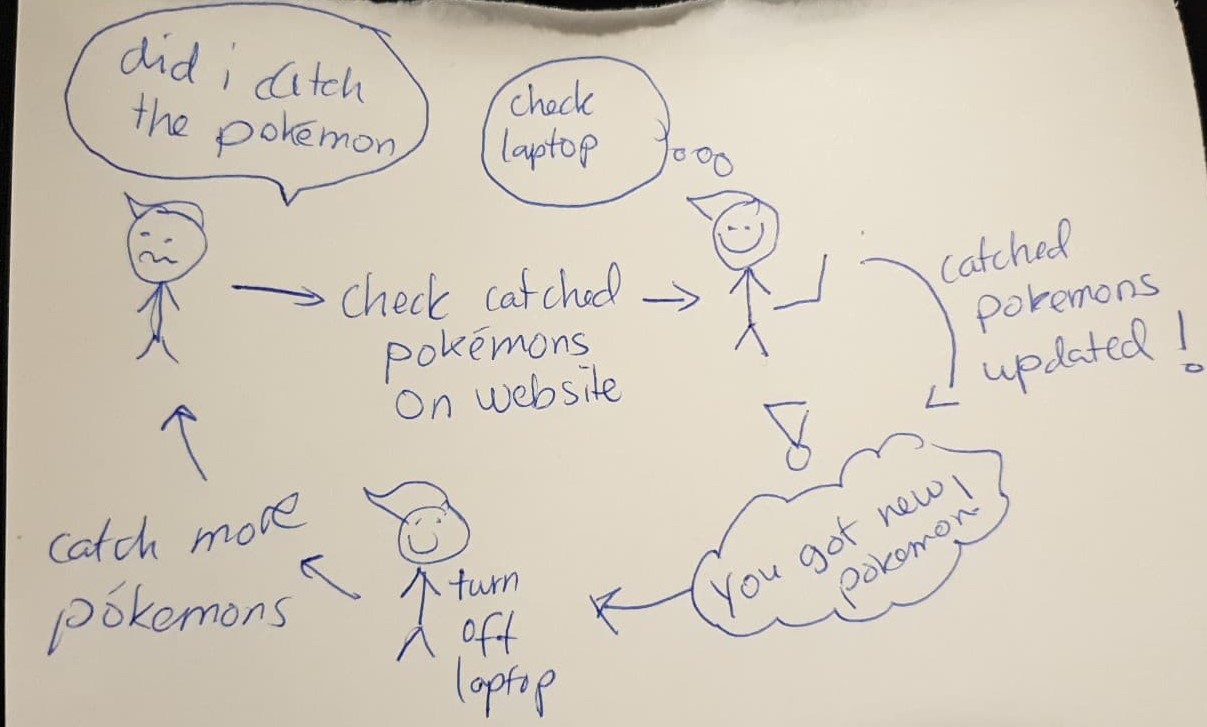 did i catch
the pokémon
check
laptop
check catched
pokémons
on website
catched
pokemons
updated !
!
You got new
pokemon!
turn
off
laptop
catch more
pókemons